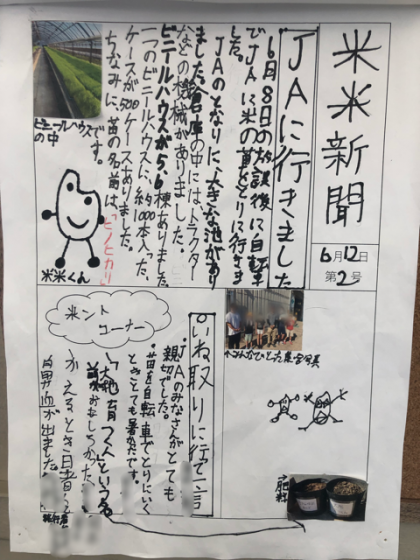 米米新聞
6月12日
第2号
JAに行きました
6月8日の放課後に自転車
でJAに米の苗をとりに行きま
した。
JAのとなりに大きな池があり
ました。倉庫の中にはトラクター
などの機械がありました。
ビニールハウスが5,6棟ありました
一つのビニールハウスに、約1000本入った、
ケースが500ケースありました。
ちなみに、苗の名前は、「ヒノヒカリ」
です。
ビニールハウス
の中
米米くん
いね取りに行て一言
JAのみなさんがとても
親切でした。
苗を自転車でとりにいく
ときとても暑かったです。
「大地育つくん」という名
前がおもしろかった。
かえるとき日暑くて
鼻血が出ました!
米ント
コーナー
みんなでとった集合写真
↑肥料